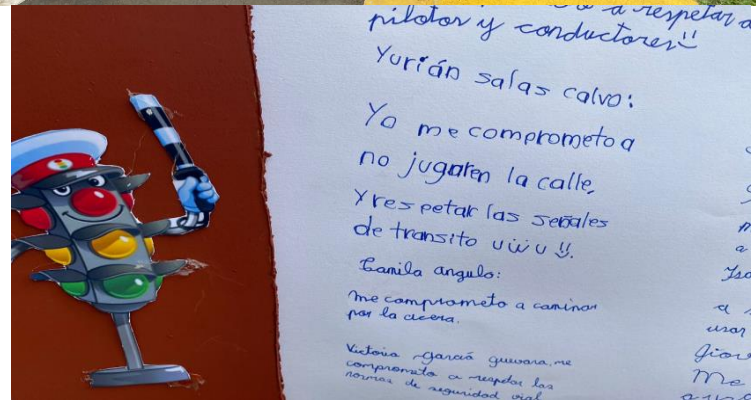 a respetar a
pilotos y conductores!!
Yurián salas calvo:
Yo me comprometo a
no jugar en la calle,
Y respetar las señales
de transito UüU !!.
Camila angulo:
me comprometo a caminar
por la acera.
Victoria García guevara, me
comprometo a respetar las
normas de seguridad vial
m
a
Isa
a
usar
Giov
Me